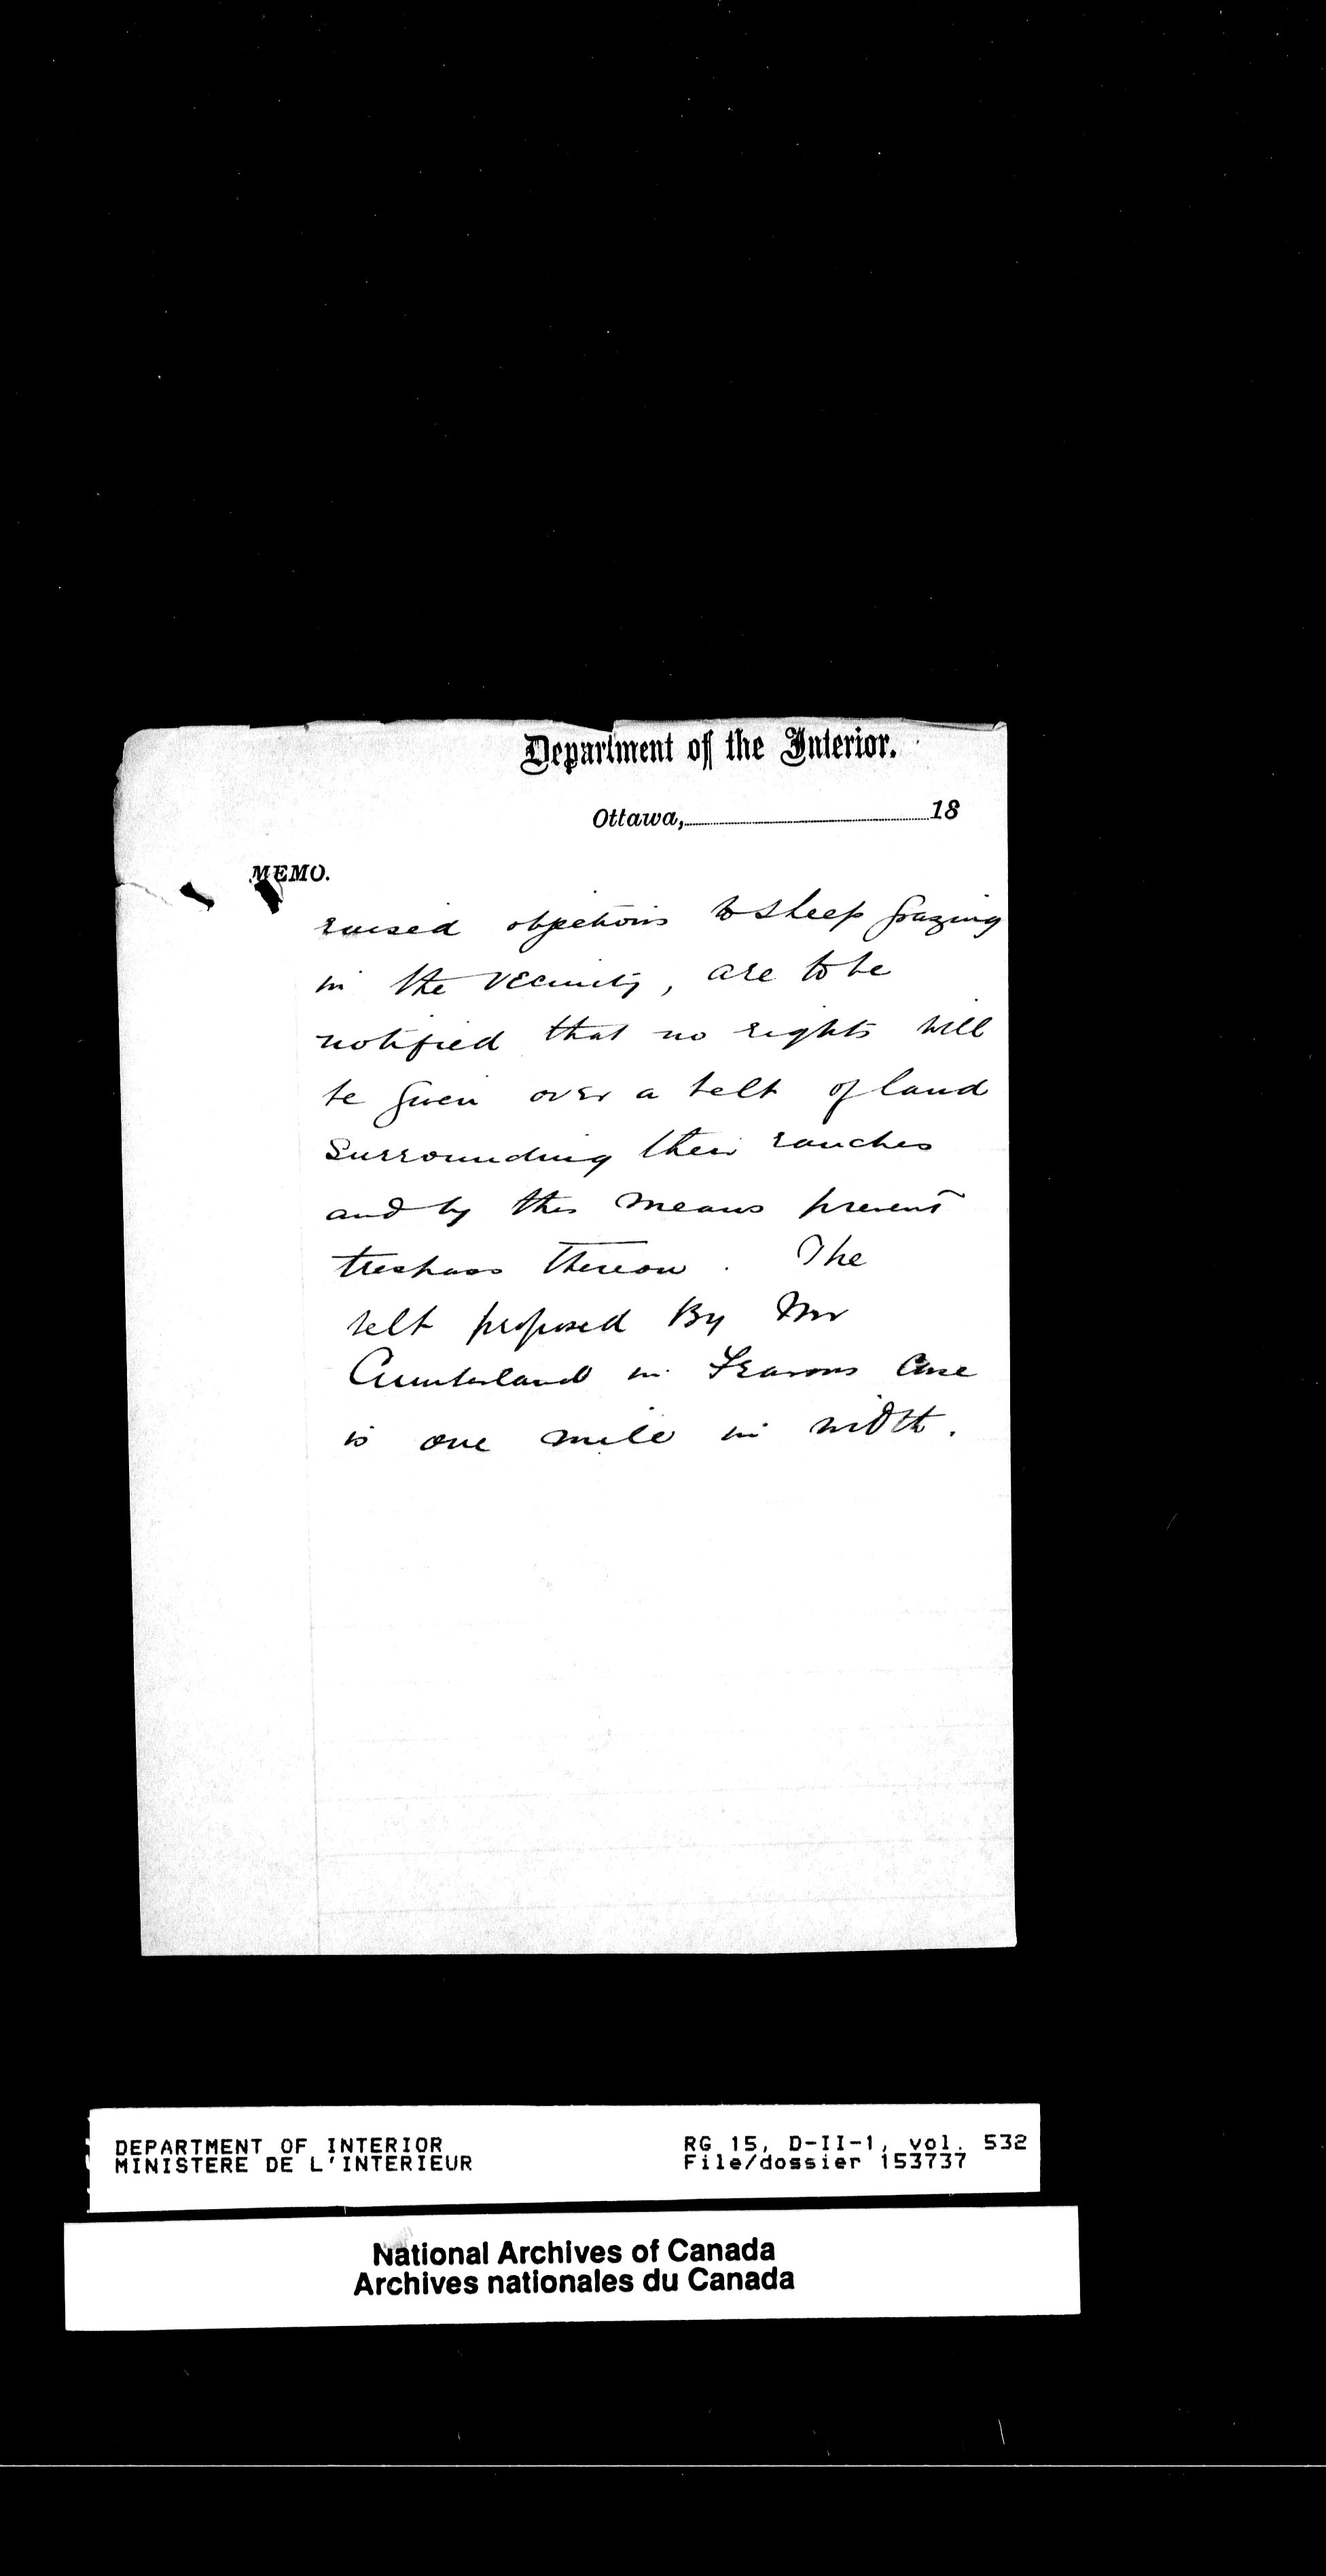 Department of the Interior.
Ottawa, 18
MEMO.
raised objections to sheep grazing
in the vicinity, are to be
notified that no rights will
be given over a belt of land
surrounding their ranches
and by this means prevent
trespass thereon. The
belt proposed By Mr
Cumberland in case
is one mile in width.
DEPARTMENT OF INTERIOR
MINISTERE DE L'INTERIEUR
RG 15, D-II-1, vol. 532
File/dossier 153737
National Archives of Canada
Archives nationales du Canada